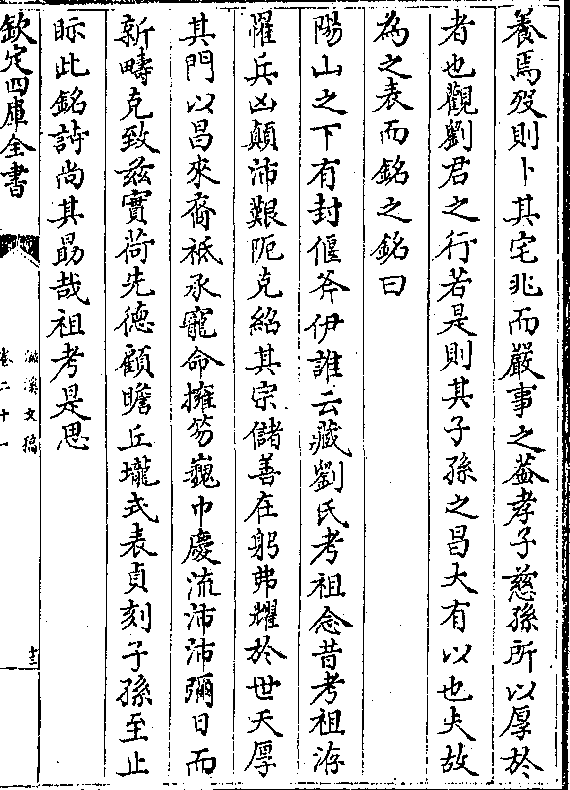 養焉歿則卜其宅兆而嚴事之葢孝子慈孫所以厚於
者也觀劉君之行若是則其子孫之昌大有以也夫故
為之表而銘之銘曰
陽山之下有封偃斧伊誰云藏劉氏考祖念昔考祖洊
罹兵凶顛沛艱阨克紹其宗儲善在躬弗耀於世天厚
其門以昌來裔祗承寵命擁笏巍巾慶流沛沛彌日而
新疇克致兹實荷先德顧瞻丘壠式表貞刻子孫至止
眎此銘詩尚其勗哉祖考是思
欽定四庫全書
瀫溪文稿
卷二十一
十三